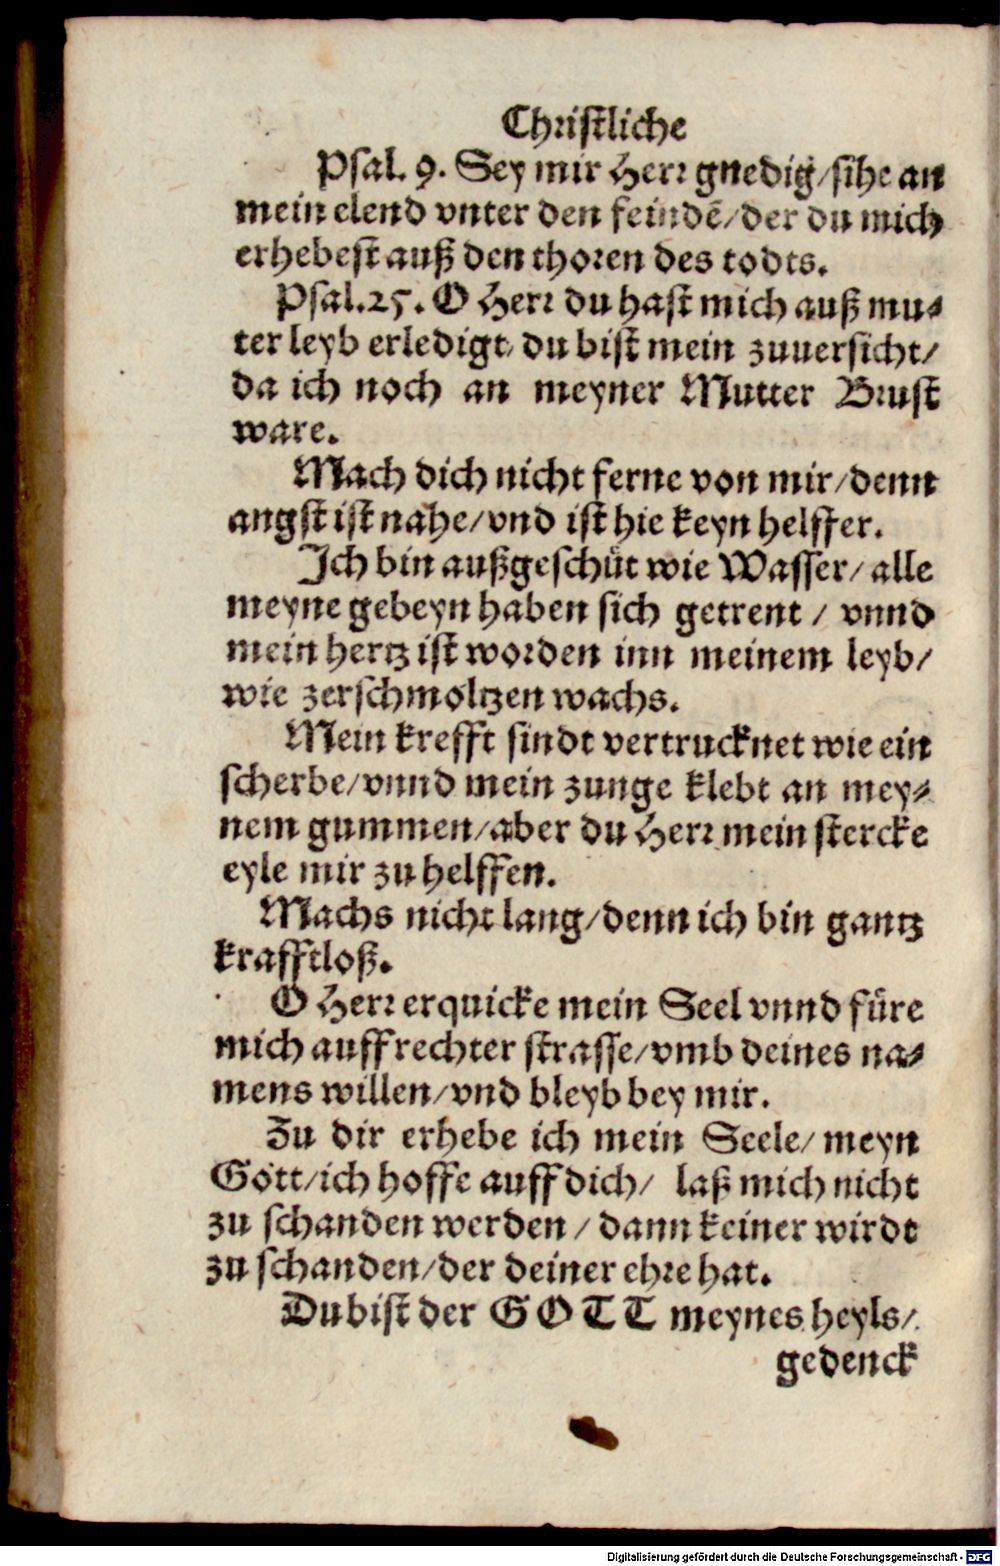 Christliche
Psal. 9. Sey mir Herr gnedig/sihe an
mein elend vnter den feindẽ/der du mich
erhebest auß den thoren des todts.
Psal.25. O Herr du hast mich auß mu⸗
ter leyb erledigt/ du bist mein zuuersicht/
da ich noch an meyner Mutter Brust
ware.
Mach dich nicht ferne von mir/denn
angst ist nahe/vnd ist hie keyn helffer.
Ich bin außgeschüt wie Wasser/ alle
meyne gebeyn haben sich getrent / vnnd
mein hertz ist worden inn meinem leyb/
wie zerschmoltzen wachs.
Mein krefft sindt vertrucknet wie ein
scherbe/vnnd mein zunge klebt an mey⸗
nem gummen/aber du Herr mein stercke
eyle mir zu helffen.
Machs nicht lang/denn ich bin gantz
krafftloß.
O Herr erquicke mein Seel vnnd füre
mich auff rechter strasse/vmb deines na⸗
mens willen/vnd bleyb bey mir.
Zu dir erhebe ich mein Seele/ meyn
Gott/ich hoffe auff dich/ laß mich nicht
zu schanden werden / dann keiner wirdt
zu schanden/der deiner ehre hat.
Du bist der GOTT meynes heyls/
gedenck
Digitalisierung gefördert durch die Deutsche Forschungsgemeinschaft - DFG